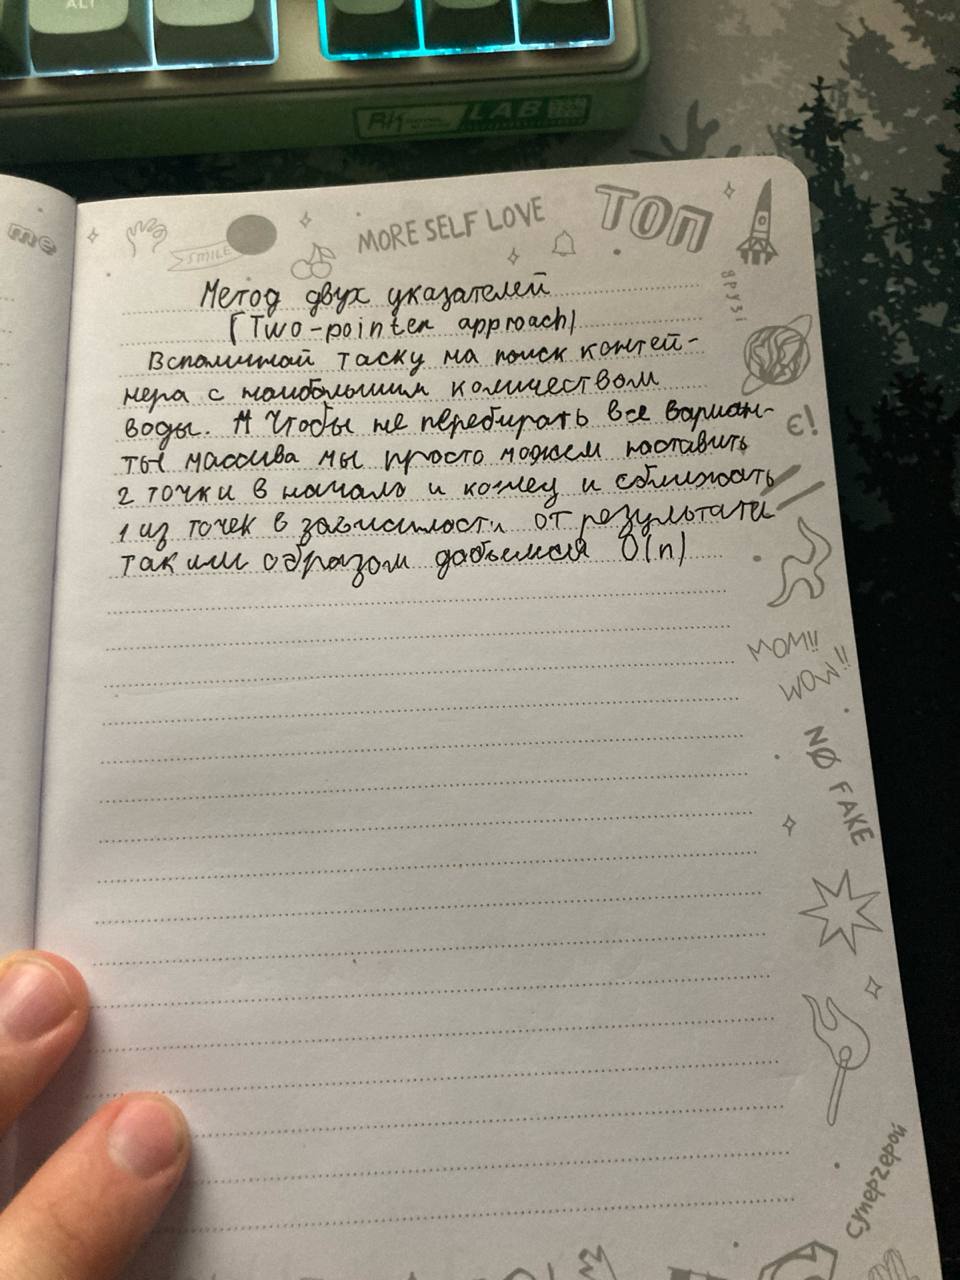 ALT
LAB
me
SMILE
MORE SELF LOVE
ТОП
друзі
Метод двух указателей
(Two-pointer approach)
Вспоминай таску на поиск контей-
нера с наибольшим количеством
воды. Чтобы не перебирать все вариан-
ты массива мы просто можем наставить
2 точки в начало и конец и сближать
1 из точек в зависимости от результата
таким образом добьемся O(n)
є!
MOM!!
WOW!!
NØ FAKE
Супергерой